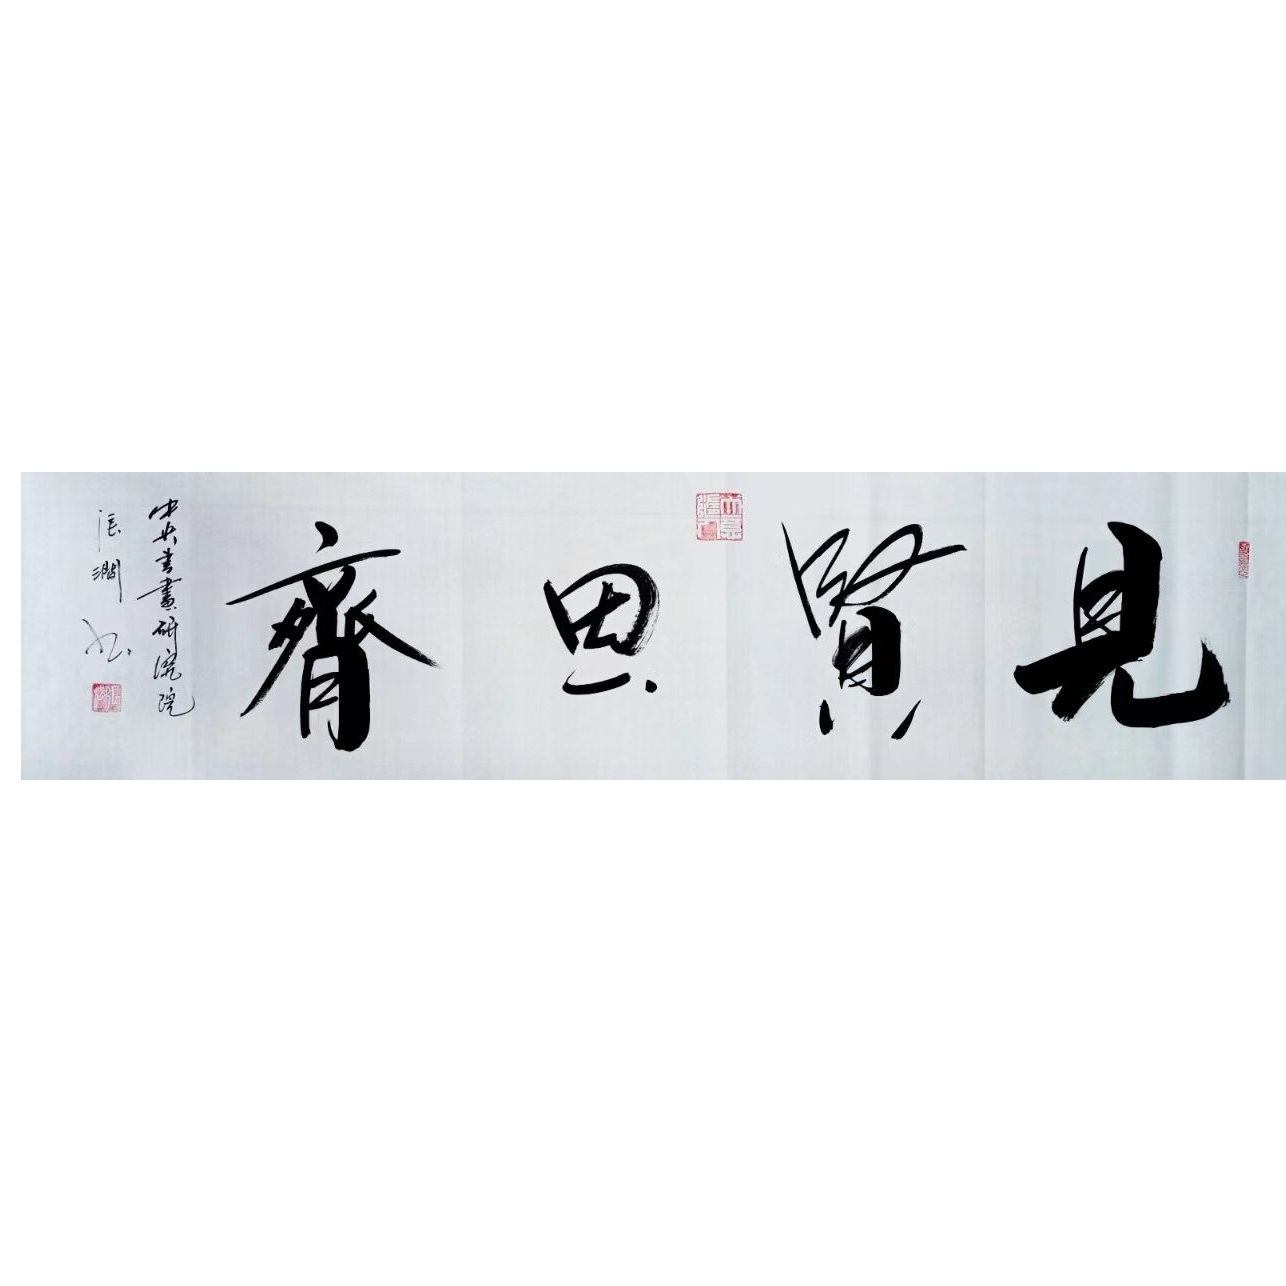 見賢思齊
中央書畫研究院
張澗書